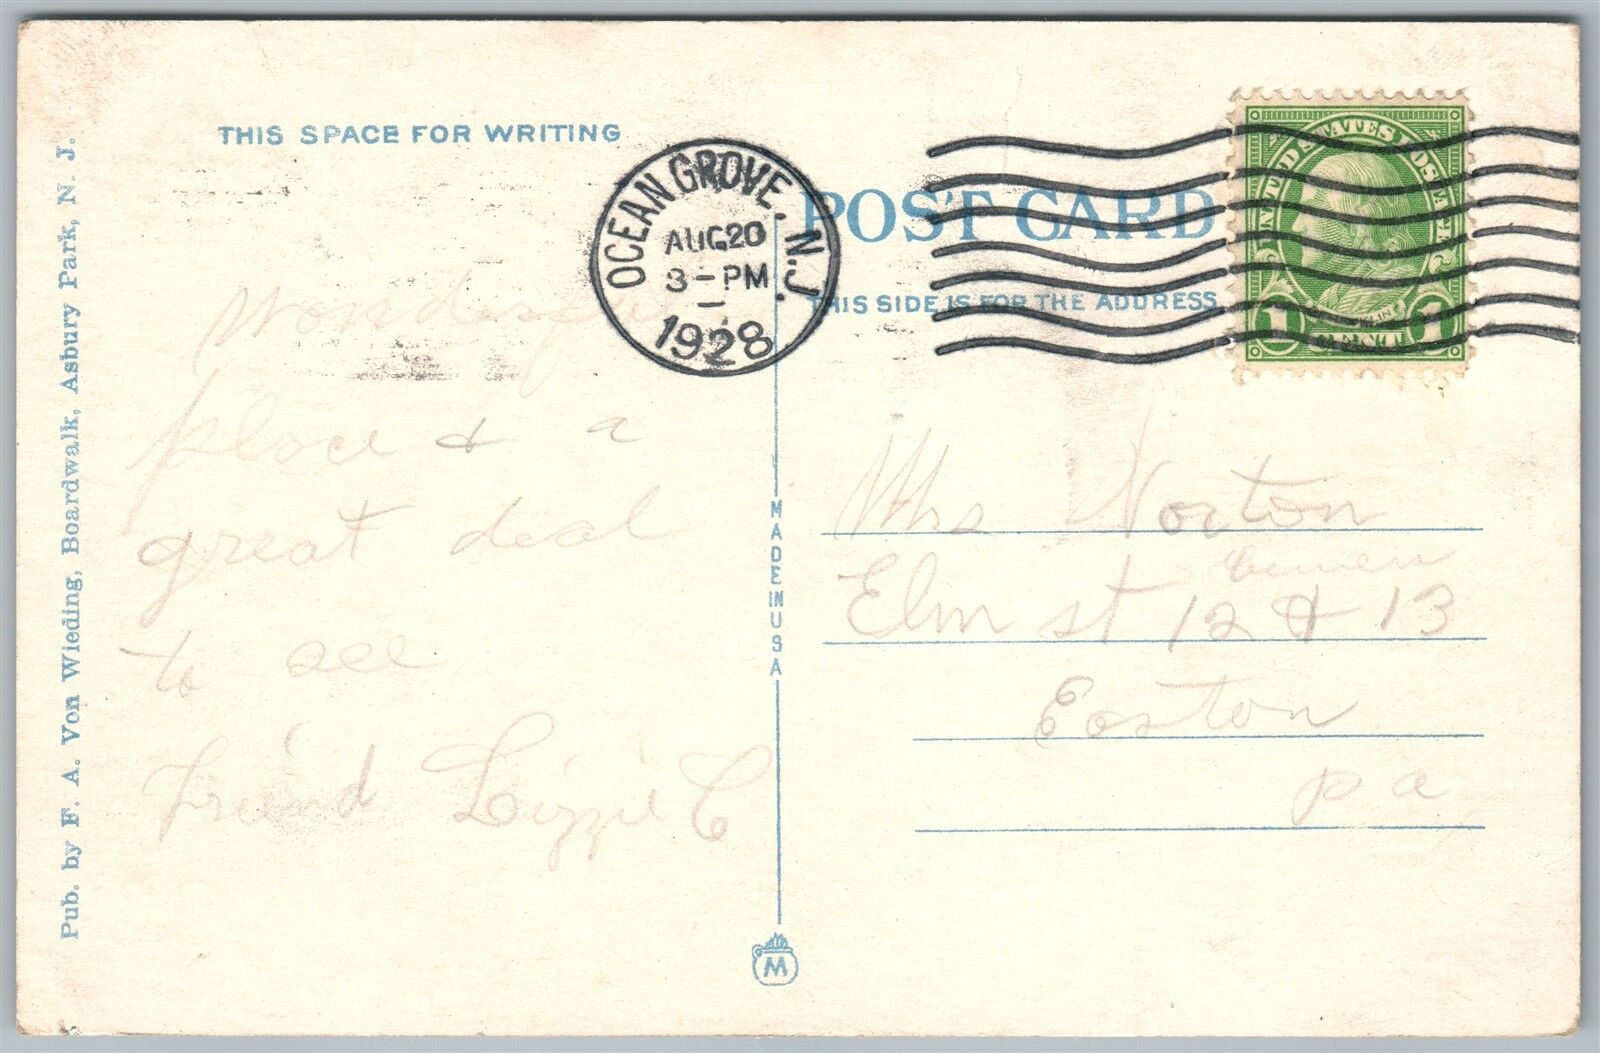 THIS SPACE FOR WRITING
OCEAN GROVE, N.J.
AUG 20
3-PM
1928
UNITED STATES POSTAGE
1 CENT 1
POST CARD
THIS SIDE IS FOR THE ADDRESS
Wonderful
place & a
great deal
to see
Friend Lizzie C
Mrs Norton
Elm st 12 & 13
Easton
pa
MADE IN USA
M
Pub. by F. A. Von Wieding, Boardwalk, Asbury Park, N. J.